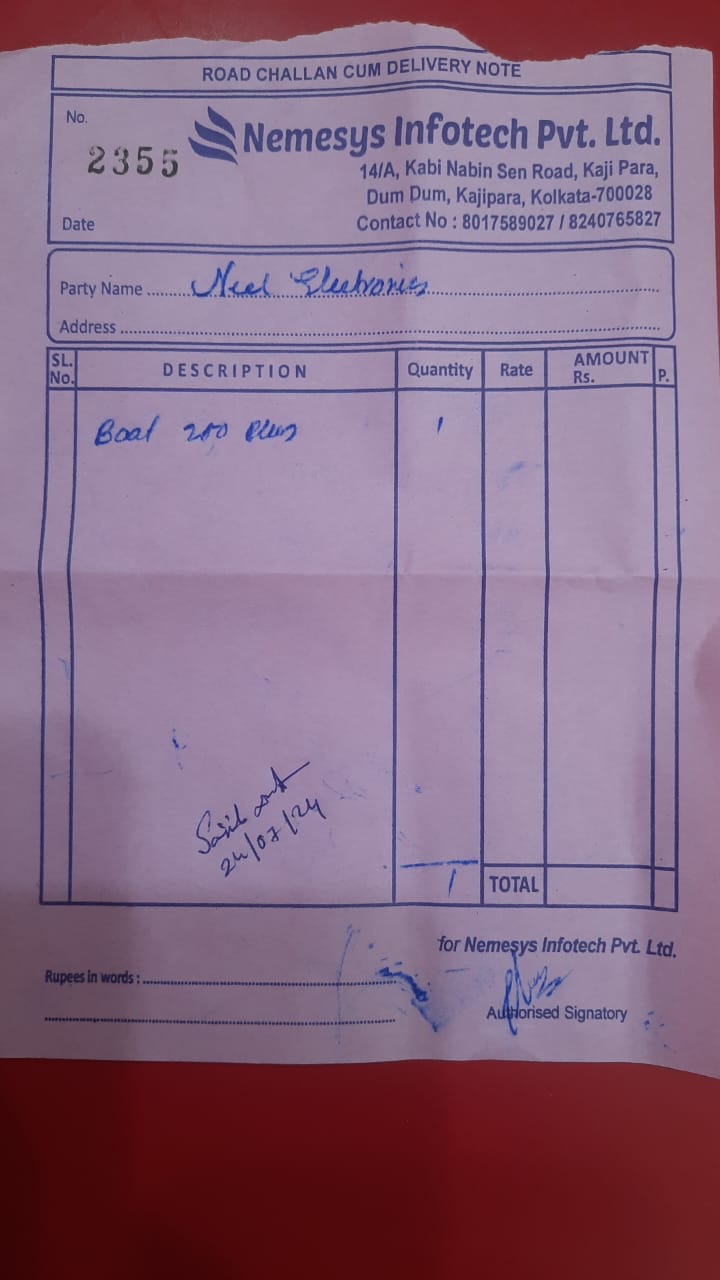 ROAD CHALLAN CUM DELIVERY NOTE
No.
2355
Nemesys Infotech Pvt. Ltd.
14/A, Kabi Nabin Sen Road, Kaji Para,
Dum Dum, Kajipara, Kolkata-700028
Contact No : 8017589027 / 8240765827
Date
Party Name Neel Electronics
Address
SL. No. DESCRIPTION Quantity Rate AMOUNT Rs. P.
Boat 200 Plus 1
24/07/24
1 TOTAL
for Nemesys Infotech Pvt. Ltd.
Rupees in words :
Authorised Signatory